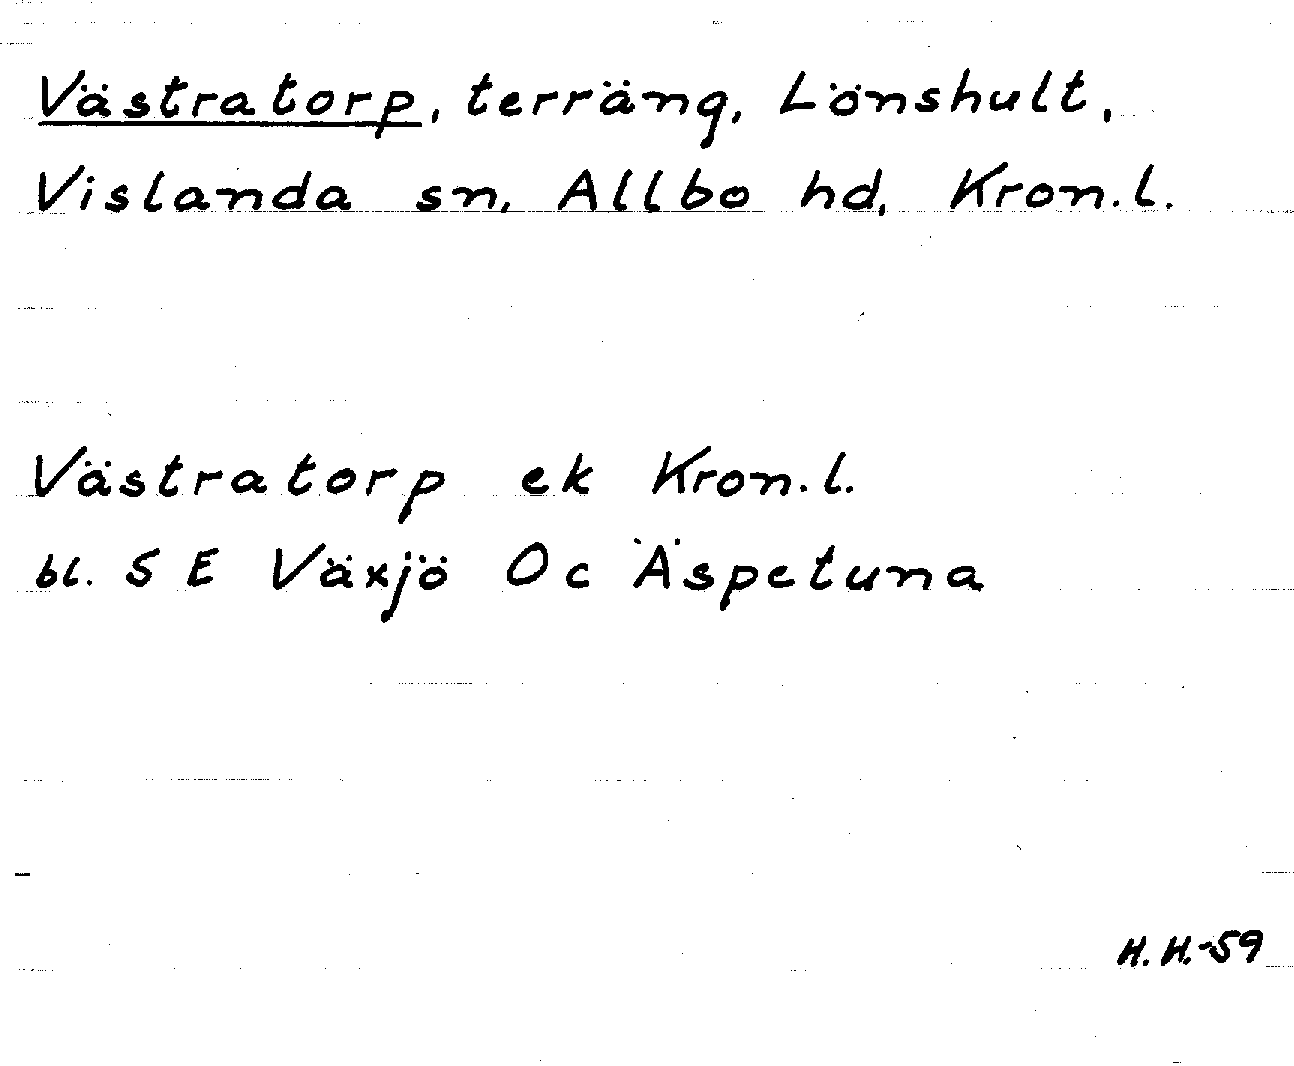 Västratorp, terräng, Lönshult,
Vislanda sn, Allbo hd, Kron.l.
Västratorp ek Kron.l.
bl. 5 E Växjö Oc Äspetuna
H.H.-59